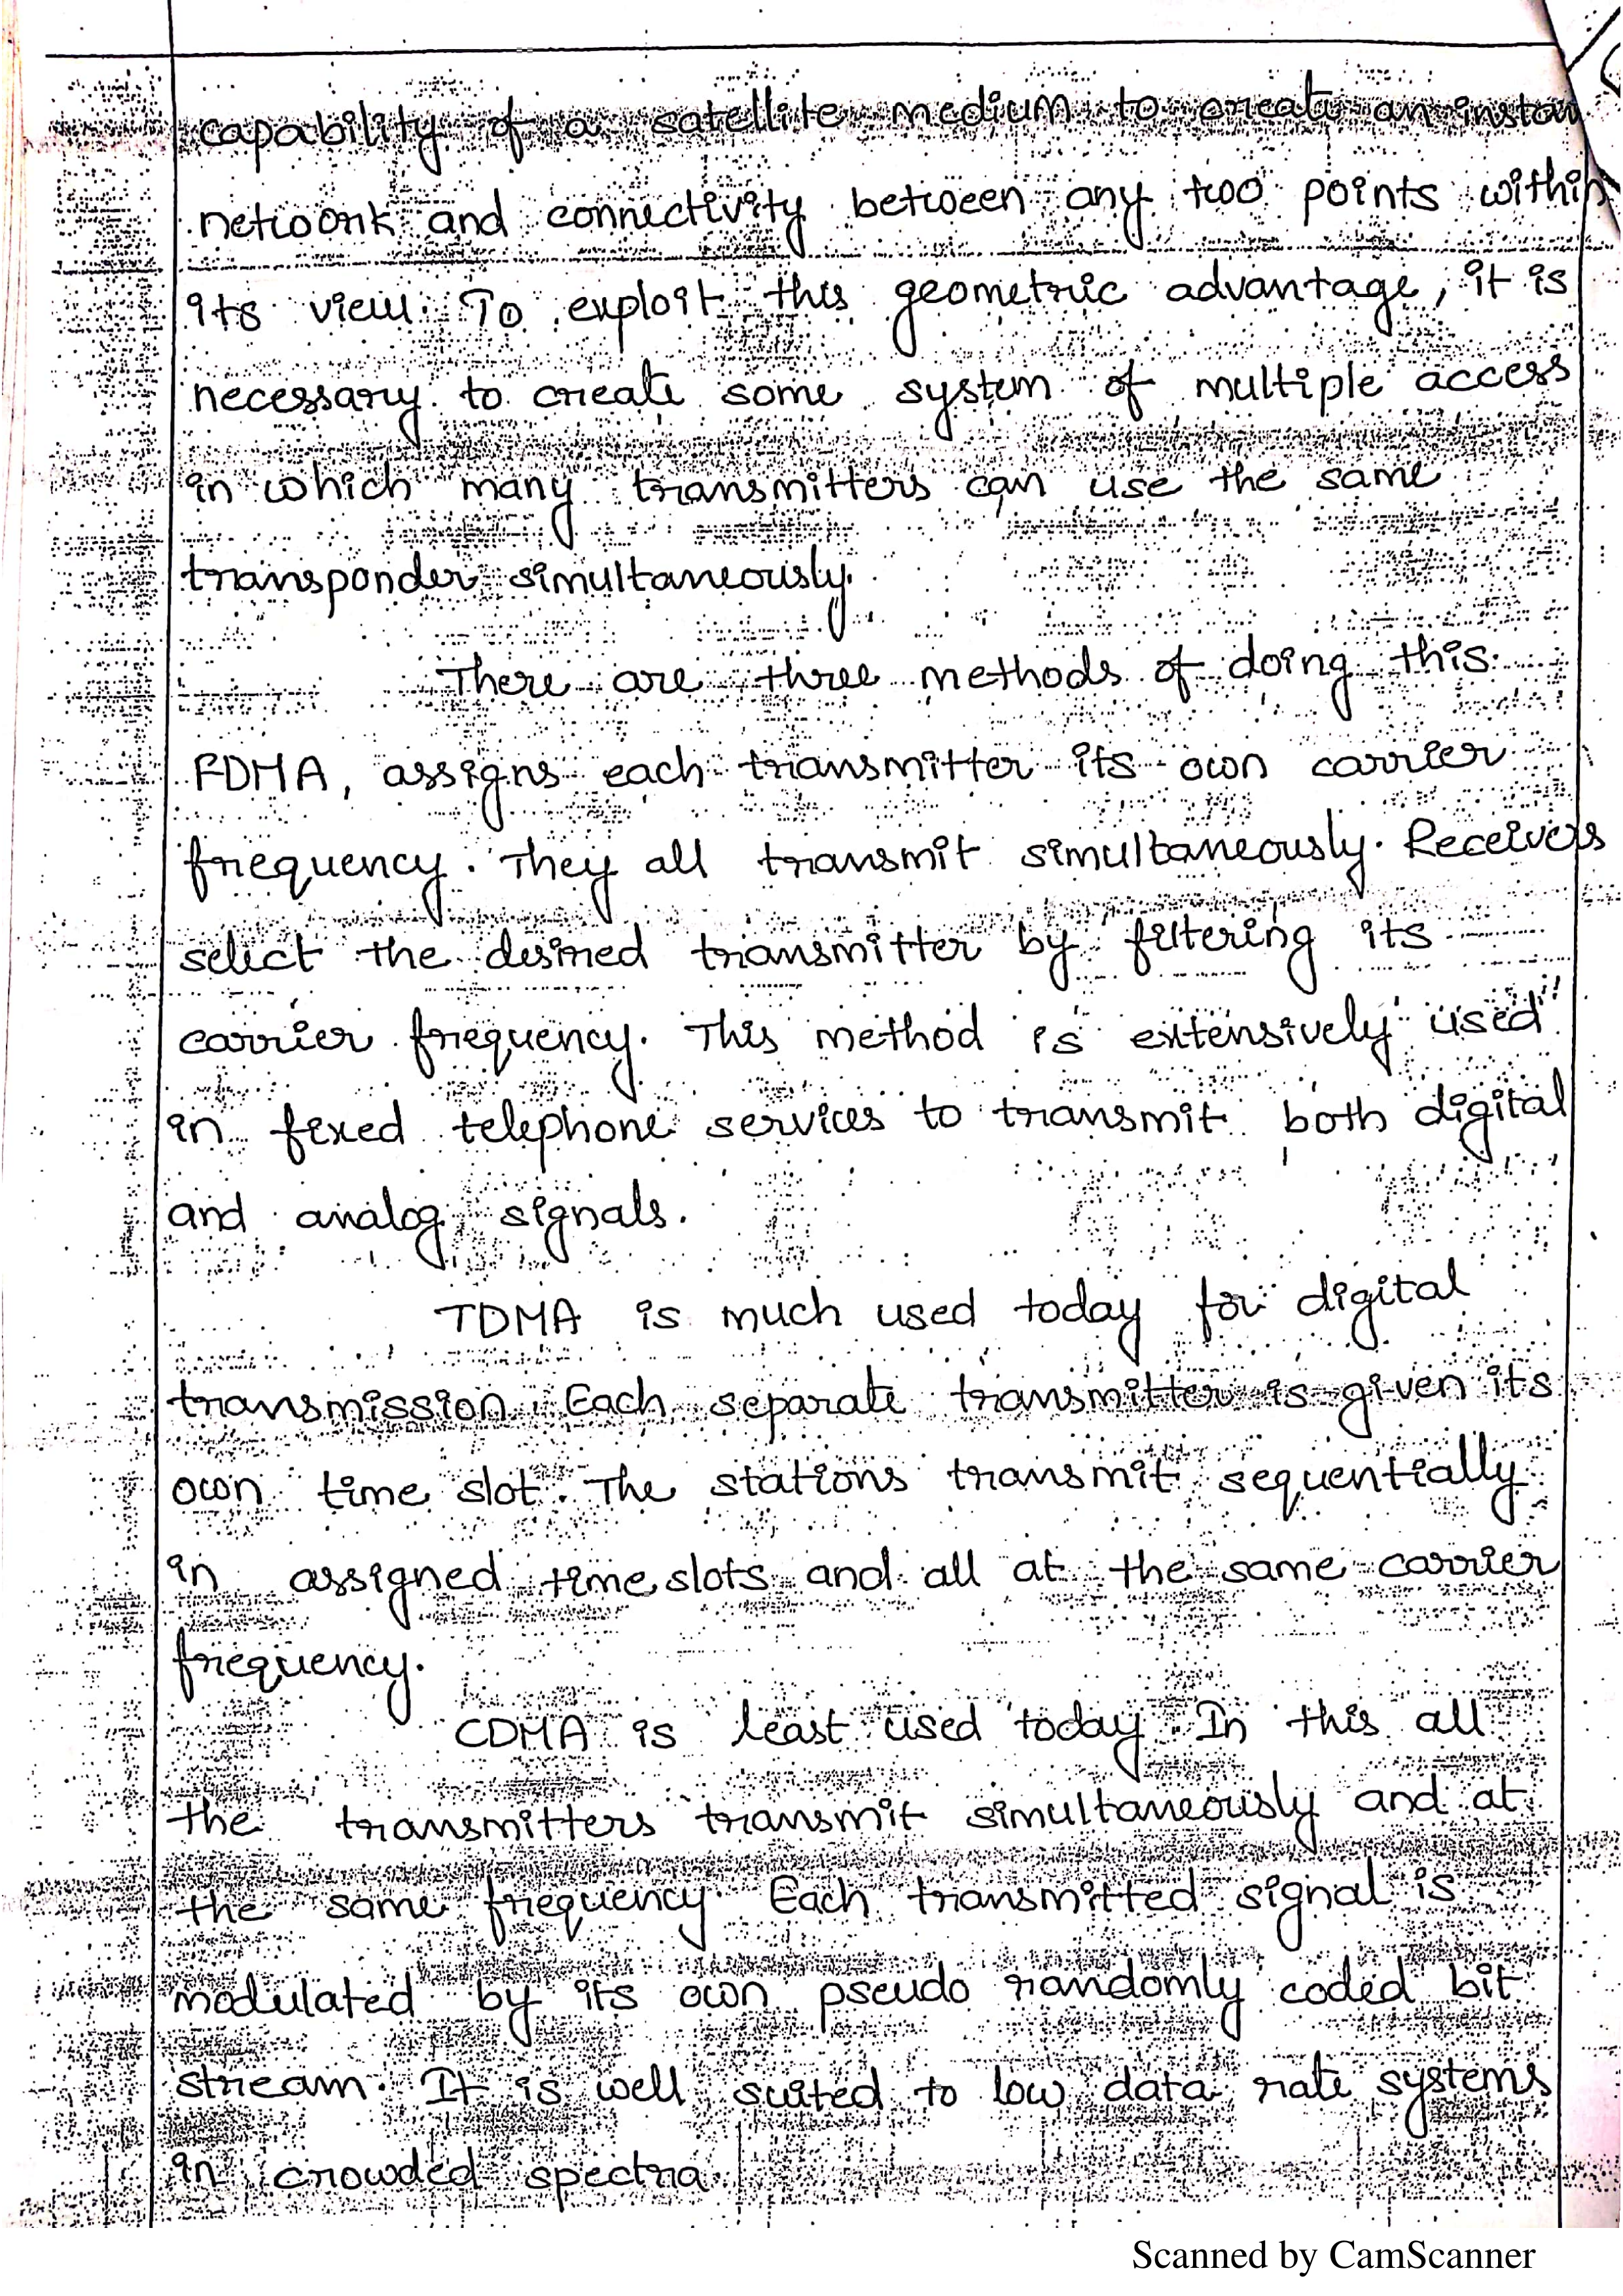 capability of a satellite medium to create an instan
network and connectivity between any two points within
its view. To exploit this geometric advantage, it is
necessary to create some system of multiple access
in which many transmitters can use the same
transponder simultaneously.
There are three methods of doing this.
FDMA, assigns each transmitter its own carrier
frequency. They all transmit simultaneously. Receivers
select the desired transmitter by filtering its
carrier frequency. This method is extensively used
in fixed telephone services to transmit both digital
and analog signals.
TDMA is much used today for digital
transmission. Each separate transmitter is given its
own time slot. The stations transmit sequentially
in assigned time slots and all at the same carrier
frequency.
CDMA is least used today. In this all
the transmitters transmit simultaneously and at
the same frequency. Each transmitted signal is
modulated by its own pseudo randomly coded bit
stream. It is well suited to low data rate systems
in crowded spectra.
Scanned by CamScanner